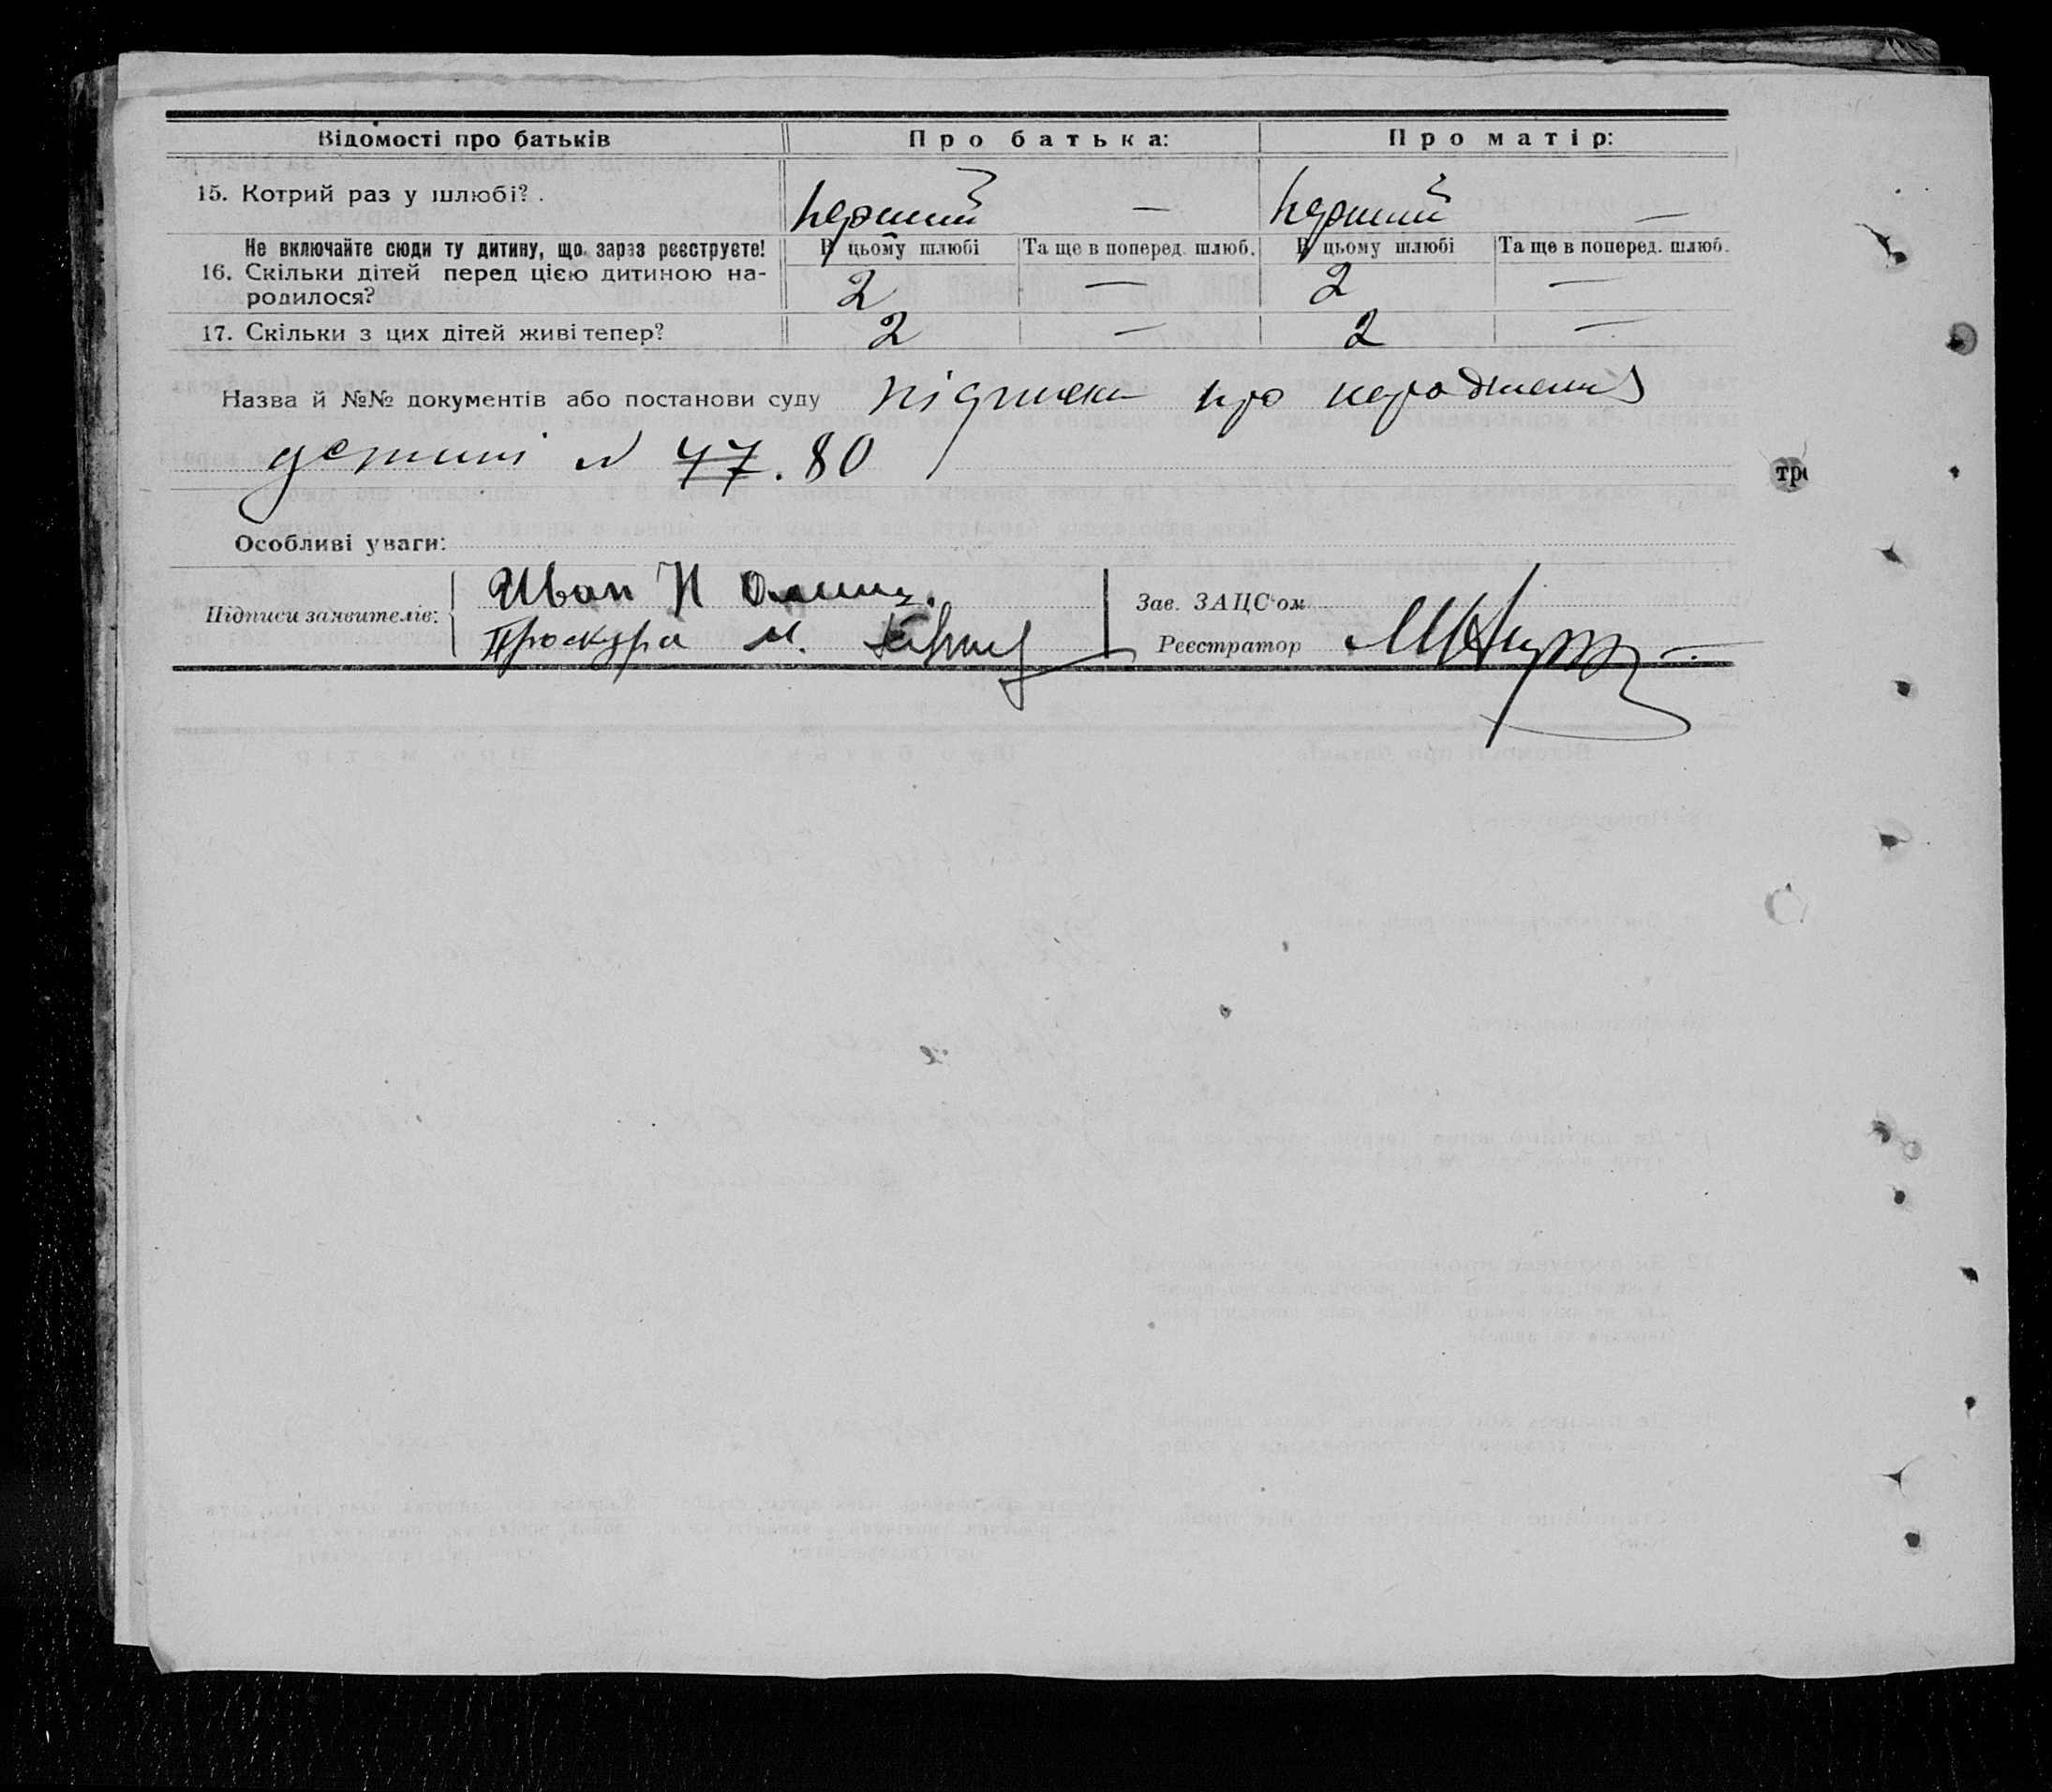 Відомості про батьків Про батька: Про матір:
15. Котрий раз у шлюбі? . перший — перший —
Не включайте сюди ту дитину, що зараз реєструєте! В цьому шлюбі Та ще в поперед. шлюб. В цьому шлюбі Та ще в поперед. шлюб.
16. Скільки дітей перед цією дитиною на-
родилося? 2 — 2 —
17. Скільки з цих дітей живі тепер? 2 — 2 —
Назва й №№ документів або постанови суду про народження
N 47. 80
Особливі уваги:
Підписи заявителів: Иван Н
Проскура М.
Зав. ЗАЦС'ом
Реєстратор
тро